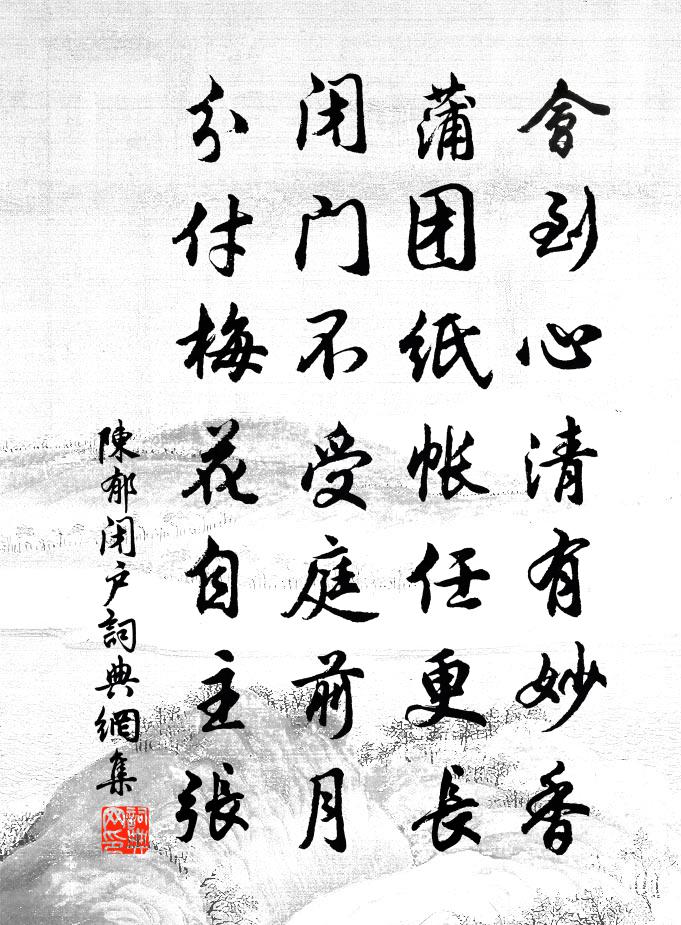 會到心清有妙香
蒲团紙帐任更長
闭门不受庭前月
分付梅花自主張
陳郁闭户詞典網集
詞典
网印